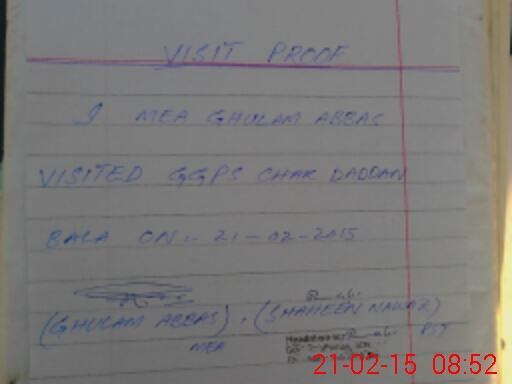 VISIT PROOF
I MEA GHULAM ABBAS
VISITED GGPS CHAK DADDAN
BALA ON:- 21-02-2015
(GHULAM ABBAS). (SHAHEEN NAWAZ)
MEA PST
21-02-15 08:52